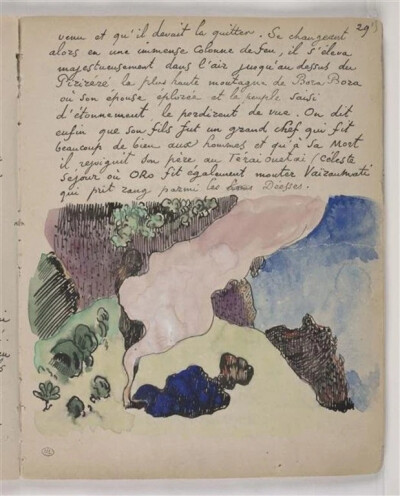 29
venu et qu'il devait la quitter. Se changeant
alors en une immense Colonne de feu, il s'éleva
majestueusement dans l'air jusqu'au dessus du
Pirizéré la plus haute montagne de Bora Bora
où son épouse éplorée et le peuple saisi
d'étonnement, le perdirent de vue. On dit
enfin que son fils fut un grand chef qui fit
beaucoup de bien aux hommes et qu'à sa Mort
il rejoignit son père au Téraï (Céleste
Séjour où Oro fit également monter Vaïraumati
qui prit rang parmi les Déesses.